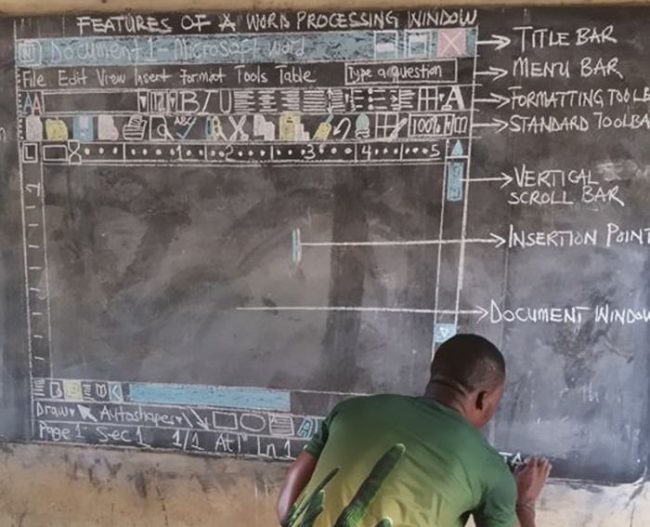 FEATURES OF A WORD PROCESSING WINDOW
Document 1 - Microsoft Word
TITLE BAR
File Edit View Insert Format Tools Table
Type a question
MENU BAR
AA
B I U
A
FORMATTING TOOLB
ABC
100%
STANDARD TOOLBA
L
1 2 3 4 5
VERTICAL
SCROLL BAR
INSERTION POINT
DOCUMENT WINDOW
Draw
Autoshapes
A
Page 1 Sec 1 1/1 At 1" Ln 1
TA